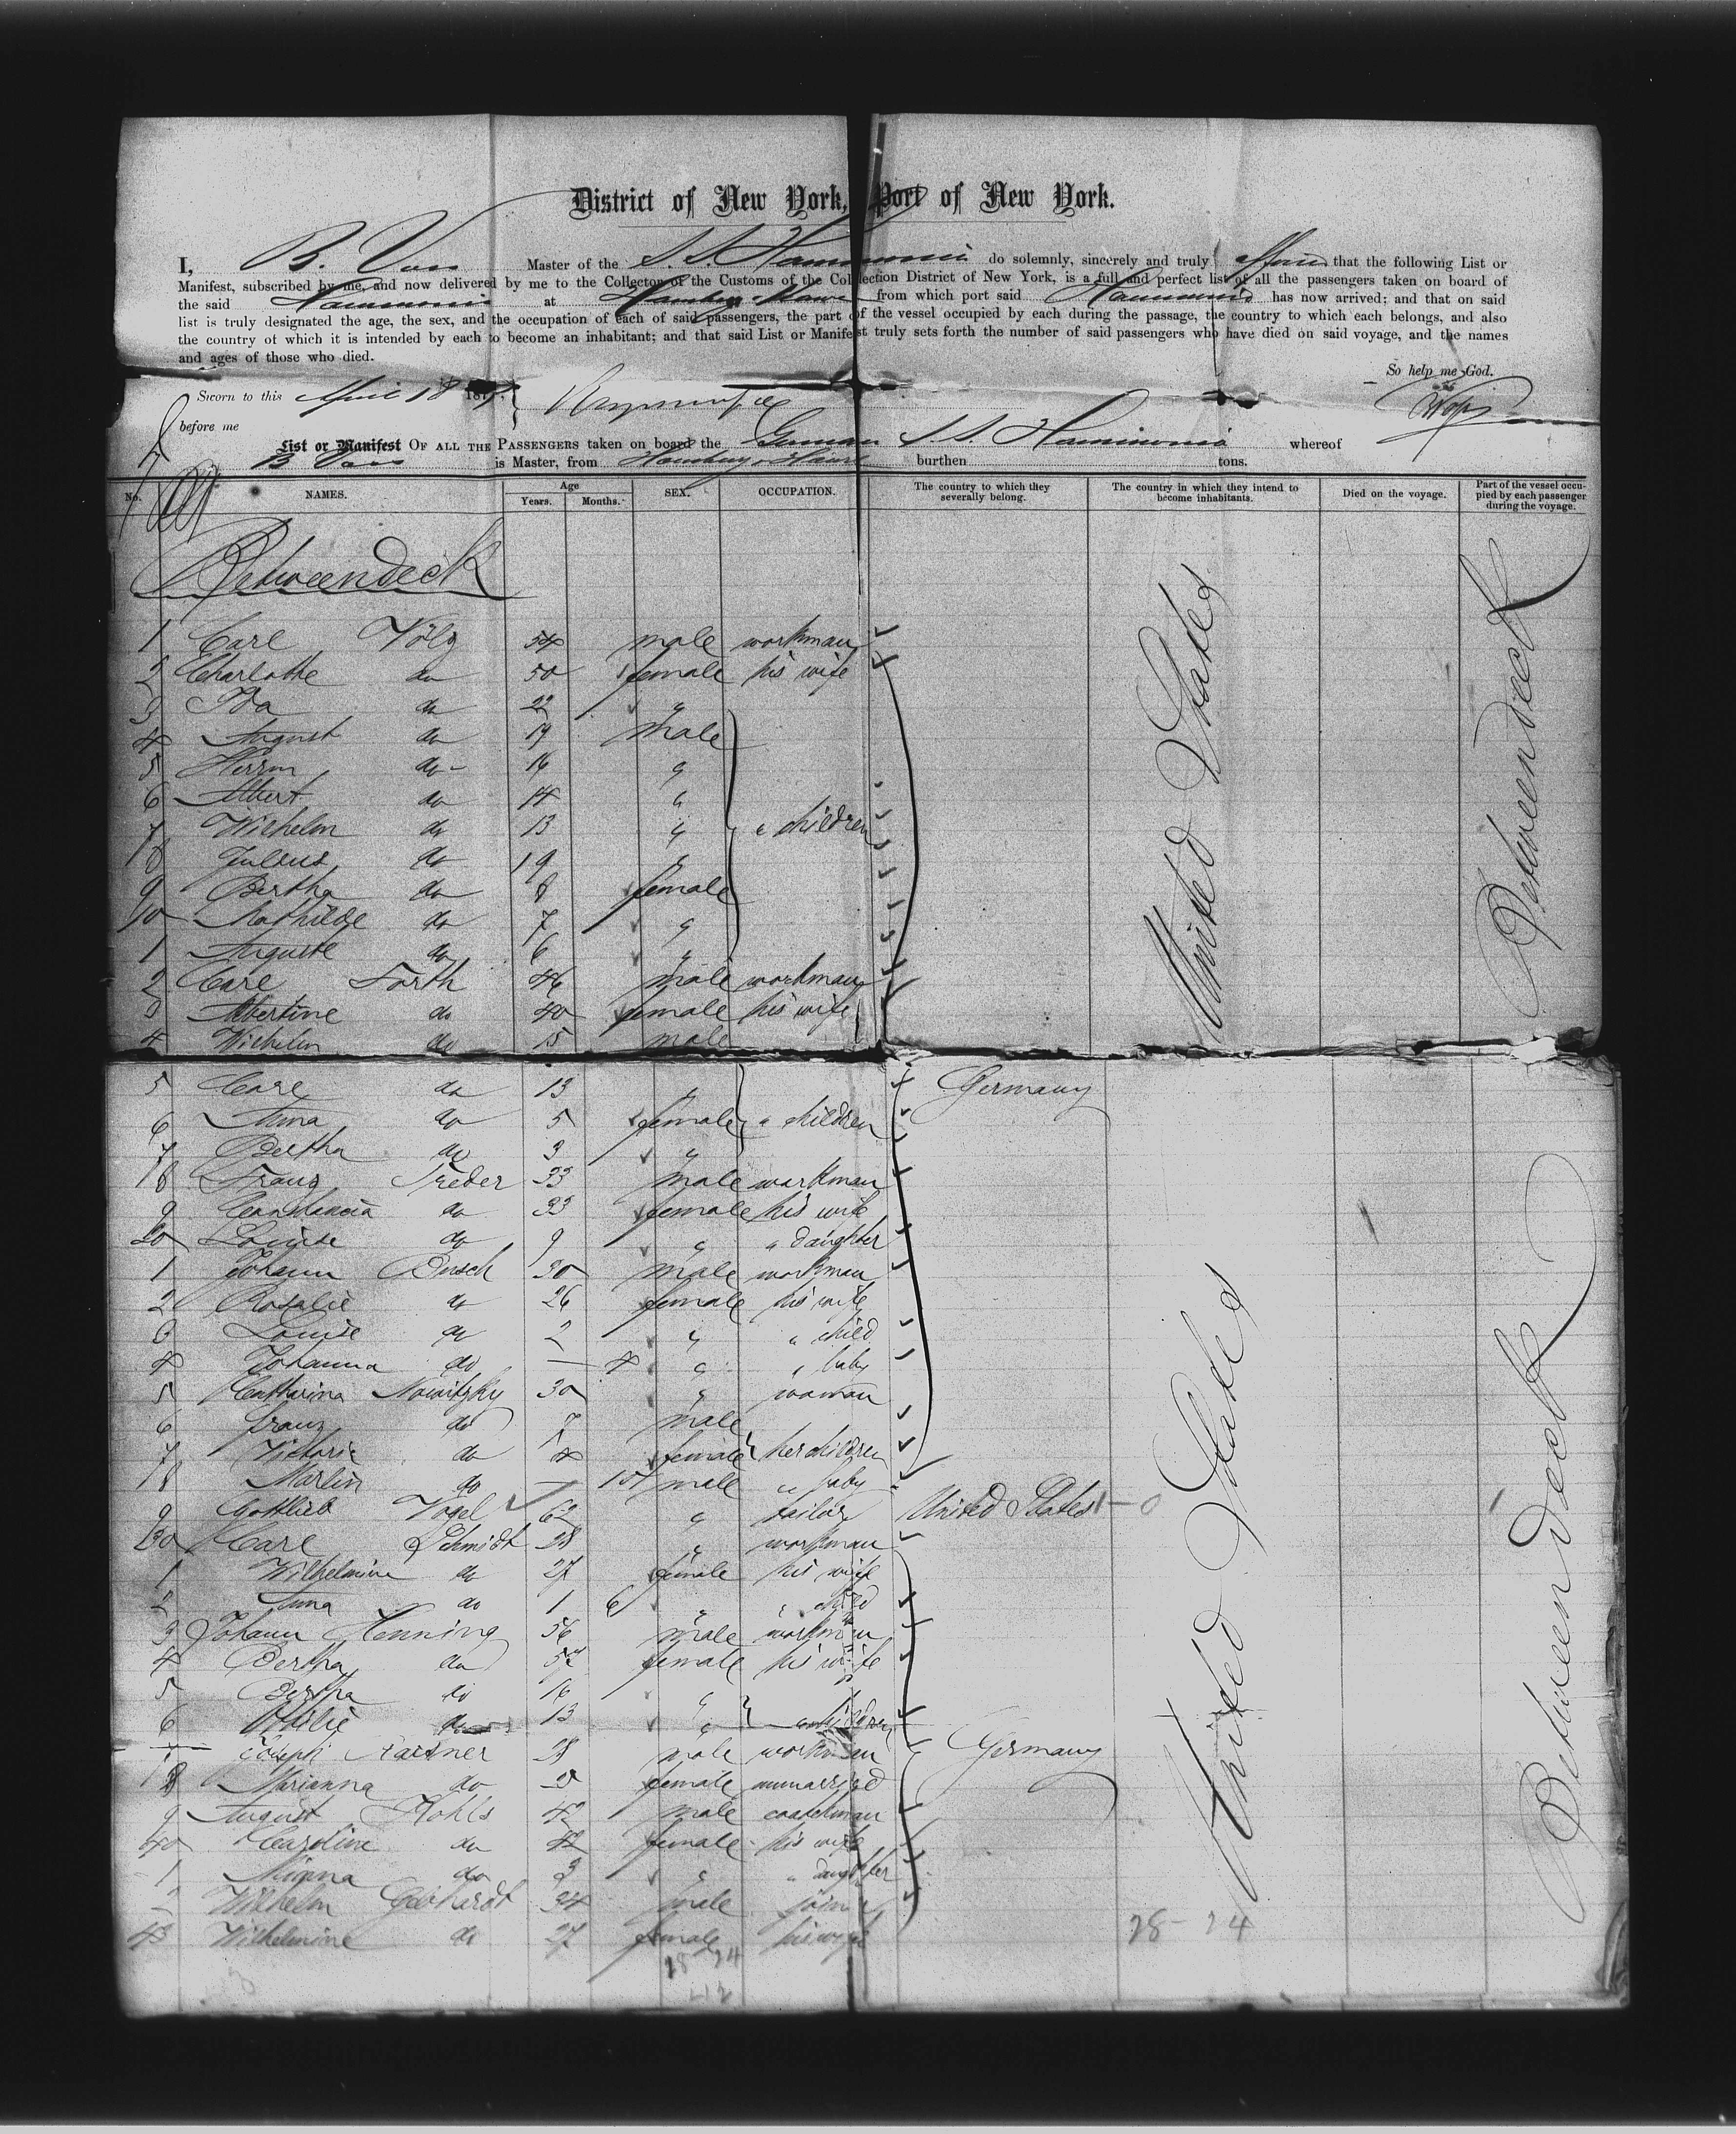 District of New York, Port of New York.
I, B. Voss Master of the S.S. Hammonia do solemnly, sincerely and truly affirm that the following List or
Manifest, subscribed by me, and now delivered by me to the Collector of the Customs of the Collection District of New York, is a full and perfect list of all the passengers taken on board of
the said Hammonia at Hamburg & Havre from which port said Hammonia has now arrived; and that on said
list is truly designated the age, the sex, and the occupation of each of said passengers, the part of the vessel occupied by each during the passage, the country to which each belongs, and also
the country of which it is intended by each to become an inhabitant; and that said List or Manifest truly sets forth the number of said passengers who have died on said voyage, and the names
and ages of those who died.
So help me God.
Sworn to this April 18 187
before me
List or Manifest OF ALL THE PASSENGERS taken on board the German S.S. Hammonia whereof
B Voss is Master, from Hamburg & Havre burthen tons.
No. NAMES. Age Years. Months. SEX. OCCUPATION. The country to which they severally belong. The country in which they intend to become inhabitants. Died on the voyage. Part of the vessel occupied by each passenger during the voyage.
Betweendeck
1 Carl Völz 54 male workman
2 Charlotte do 50 female his wife
3 Ida do 22 "
4 August do 19 male
5 Herrm do 16 "
6 Albert do 14 "
7 Wilhelm do 13 " " children
8 Julius do 9 "
9 Bertha do 8 female
10 Mathilde do 7 "
1 Auguste do 6 "
2 Carl Forth 46 male workman
3 Albertine do 40 female his wife
4 Wilhelm do 15 male
5 Carl do 13 " Germany
6 Anna do 5 female " children
7 Bertha do 3 "
18 Franz Treder 33 male workman
9 Constancia do 33 female his wife
20 Louise do 9 " " daughter
1 Johann Busch 30 male workman
2 Rosalie do 26 female his wife
3 Louise do 2 " " child
4 Johanna do — 4 " " baby
5 Catharina Nowitzky 30 " woman
6 Franz do 7 male
7 Victoria do 4 female her children
8 Martin do — male " baby
9 Gottlieb Vogel 62 " tailor United States
30 Carl Schmidt 28 " workman
1 Wilhelmine do 27 female his wife
2 Anna do 1 6 " " child
3 Johann Henning 56 male workman
4 Bertha do female his wife
5 Bertha do 16 "
6 do 13 " " children
7 Joseph 28 male workman Germany
8 Marianna do female unmarried
9 August Kohls 42 male coachman
40 Caroline do 42 female his wife
1 Minna do 3 " " daughter
2 Wilhelm Gebhardt 34 male joiner
43 Wilhelmine do 27 female his wife
United States
Betweendeck
United States
Betweendeck
28-24
18-24